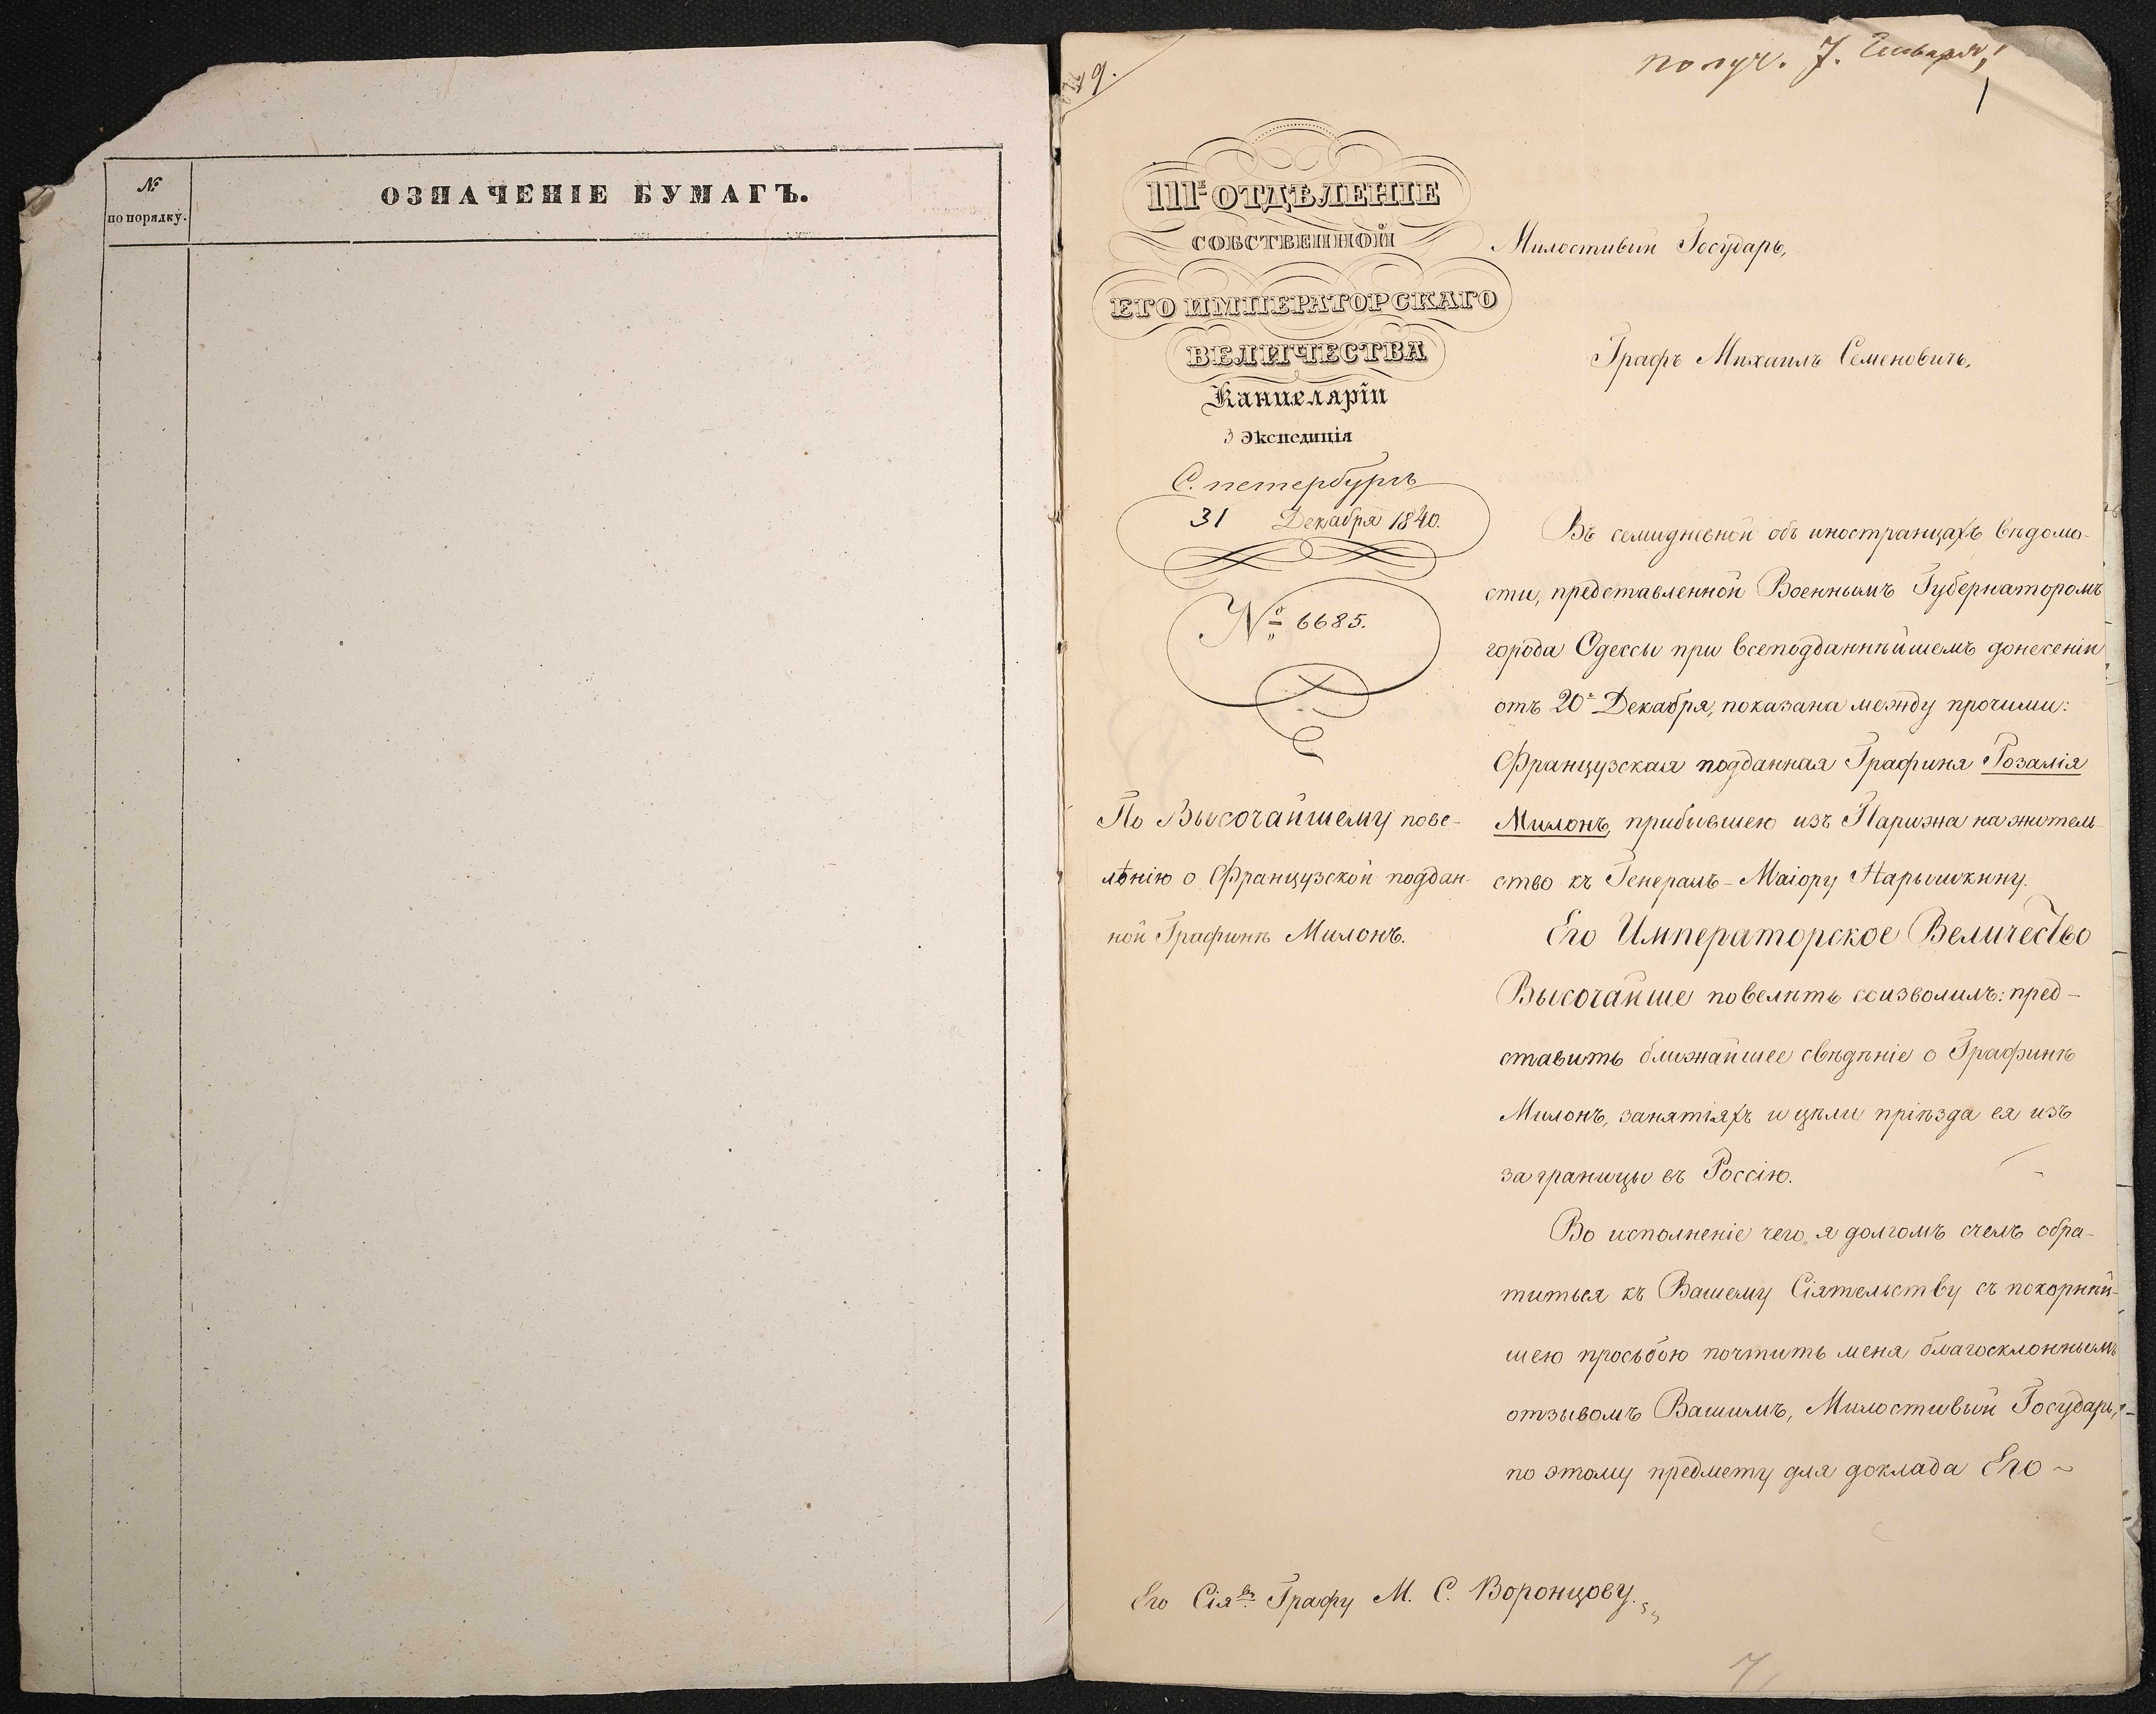 №
по порядку.
ОЗНАЧЕНІЕ БУМАГЪ.
получ. 7. Января,
1
9.
IIIе ОТДѢЛЕНІЕ
СОБСТВЕННОЙ
ЕГО ИМПЕРАТОРСКАГО
ВЕЛИЧЕСТВА
Канцеляріи
3 Экспедиція
С. петербургъ
31 Декабря 1840.
№ 6685.
По Высочайшему пове-
лѣнію о Французской поддан-
ной Графинѣ Милонъ.
Милостивый Государь,
Графъ Михаилъ Семеновичь,
Въ семидневной объ иностранцахъ вѣдомо-
сти, представленной Военнымъ Губернаторомъ
города Одессы при всеподданнѣйшемъ донесеніи
отъ 20го Декабря, показана между прочими:
Французская подданная Графиня Розалія
Милонъ, прибывшею изъ Парижа на житель-
ство къ Генералъ-Маіору Нарышкину.
Его Императорское Величество
Высочайше повелѣть соизволилъ: пред-
ставить ближайшее свѣдѣніе о Графинѣ
Милонъ, занятіяхъ и цѣли пріѣзда ея изъ
за границы въ Россію.
Во исполненіе чего, я долгомъ счелъ обра-
титься къ Вашему Сіятельству съ покорнѣй-
шею просьбою почтить меня благосклоннымъ
отзывомъ Вашимъ, Милостивый Государь,
по этому предмету для доклада Его ~
Его Сіяву Графу М. С. Воронцову.